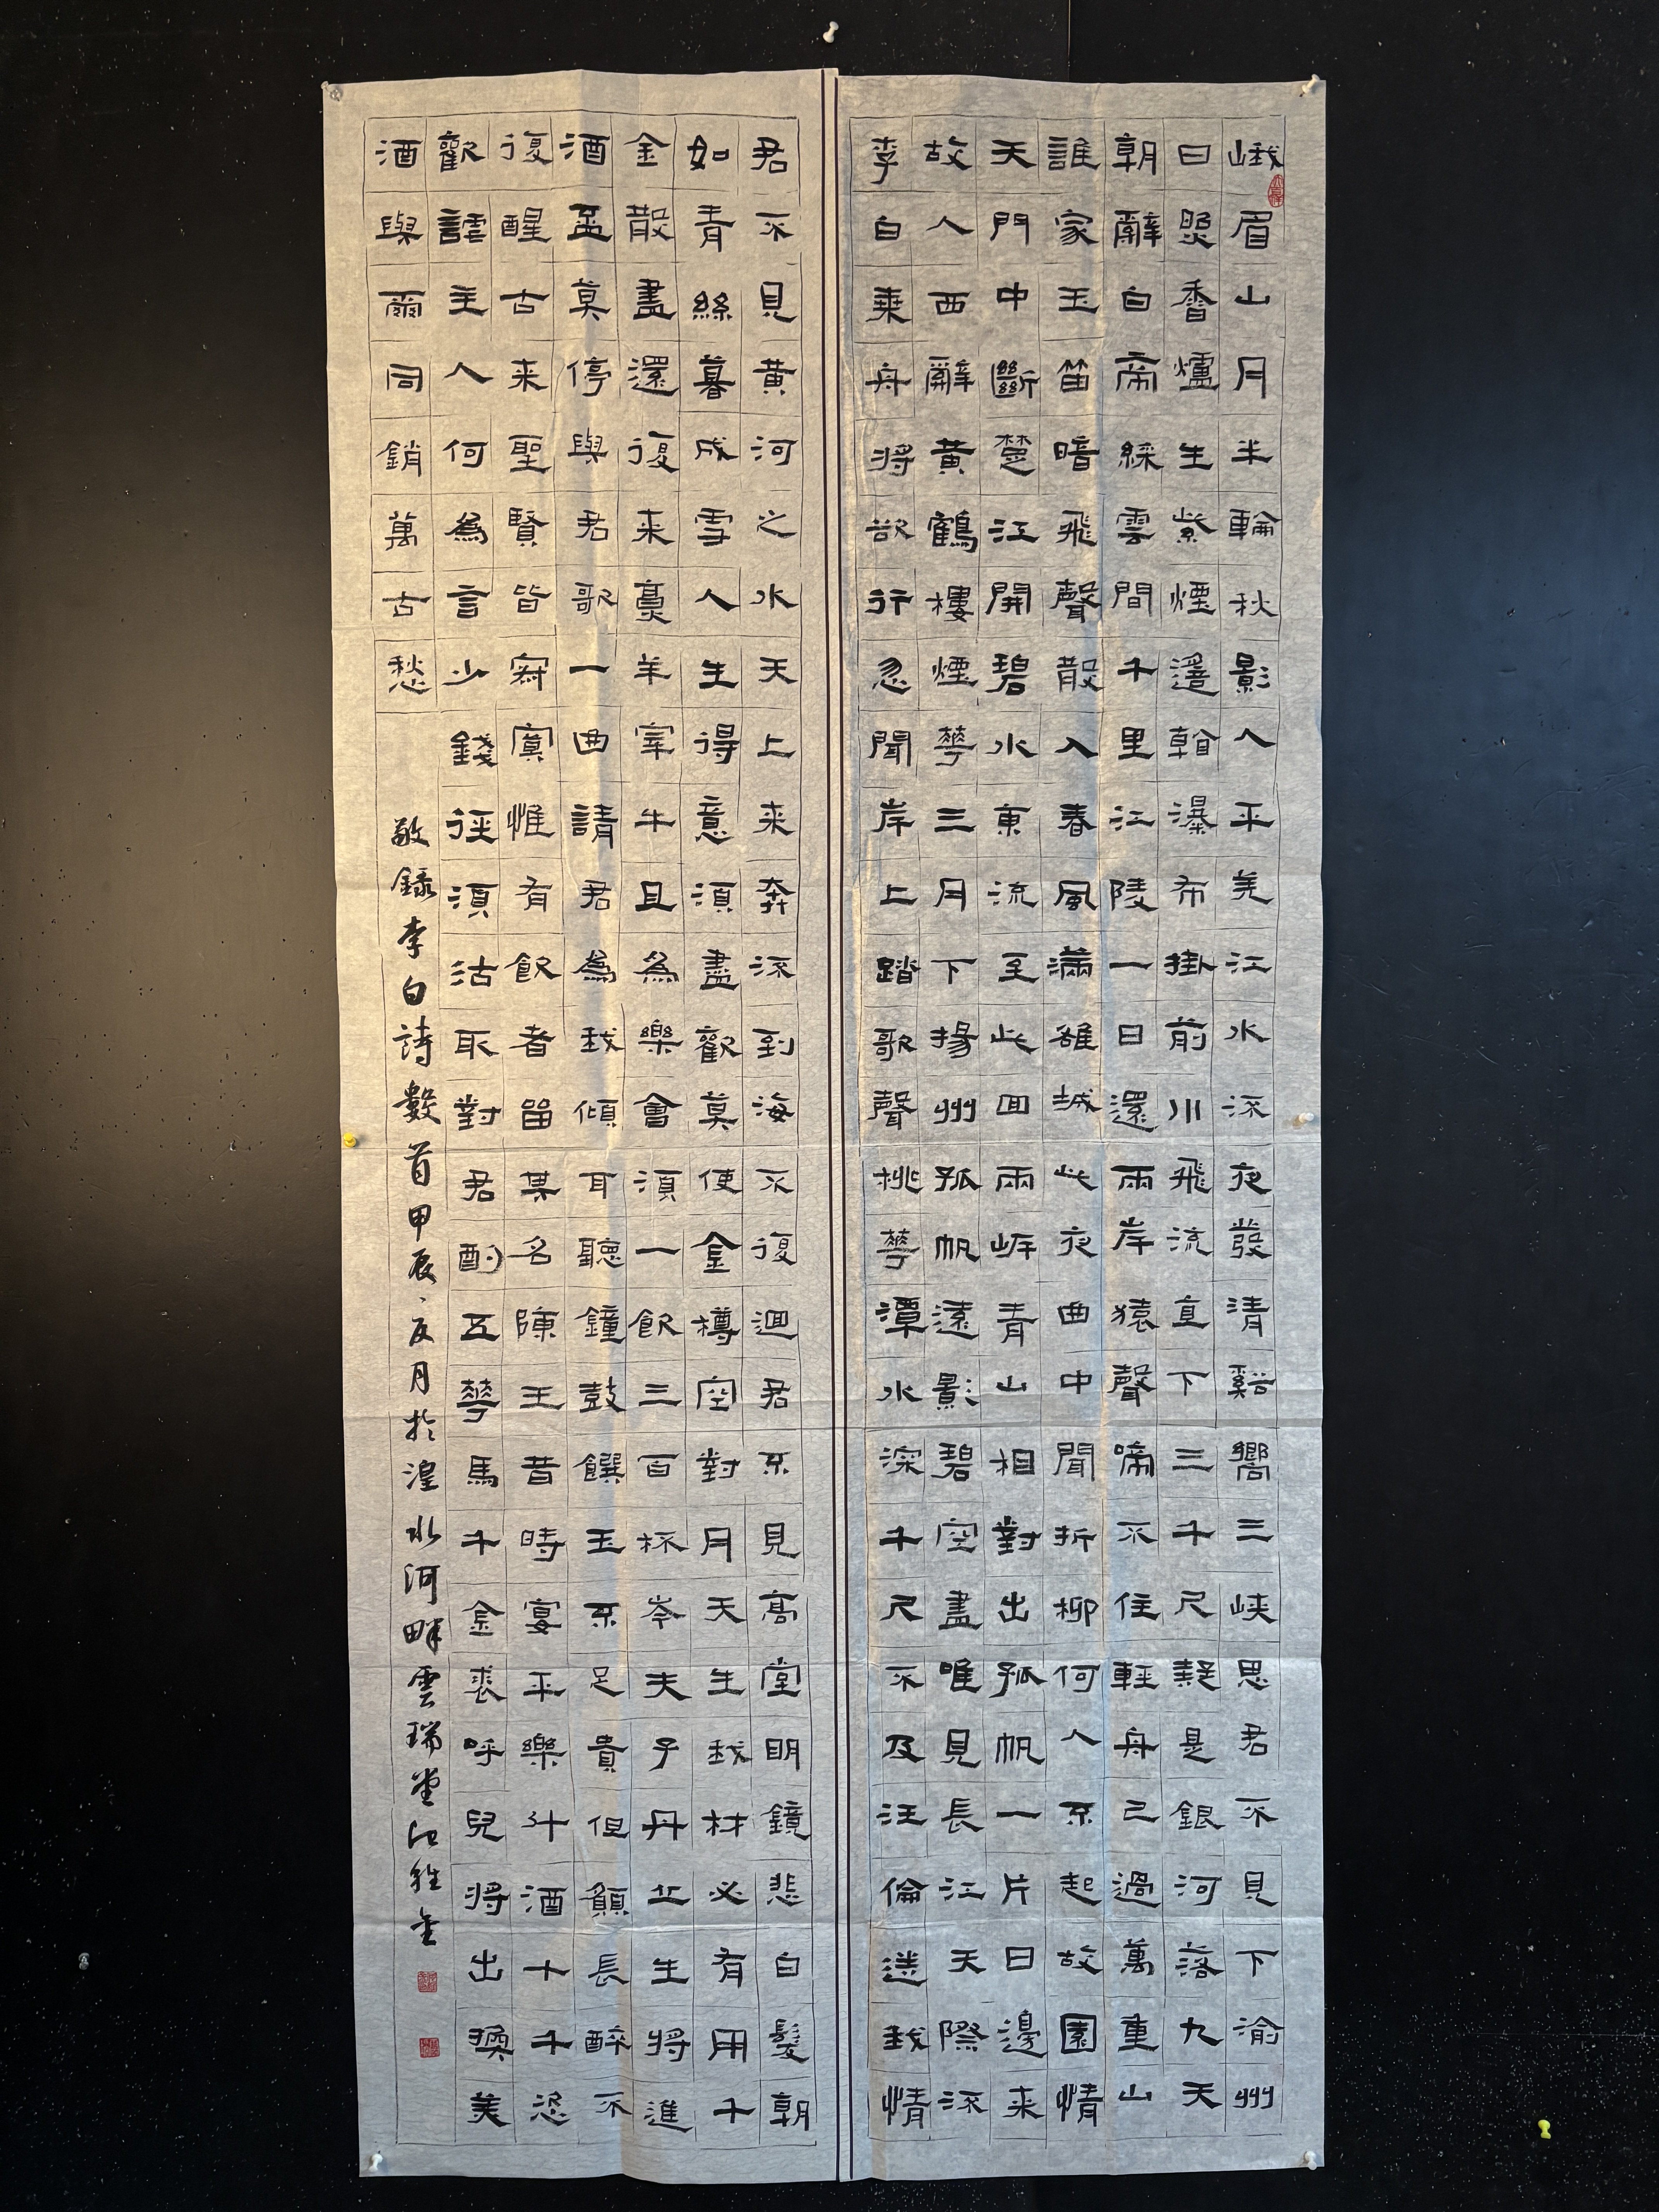 峨眉山月半輪秋影入平羌江水流夜發清谿嚮三峽思君不見下渝州
日照香爐生紫煙遥看瀑布掛前川飛流直下三千尺疑是銀河落九天
朝辭白帝綵雲間千里江陵一日還兩岸猿聲啼不住輕舟已過萬重山
誰家玉笛暗飛聲散入春風滿雒城此夜曲中聞折柳何人不起故園情
天門中斷楚江開碧水東流至此回兩岸青山相對出孤帆一片日邊来
故人西辭黃鶴樓煙華三月下揚州孤帆遠影碧空盡唯見長江天際流
李白乘舟將欲行忽聞岸上踏歌聲桃華潭水深千尺不及汪倫送我情
君不見黃河之水天上来奔流到海不復迴君不見高堂明鏡悲白髮朝
如青絲暮成雪人生得意須盡歡莫使金樽空對月天生我材必有用千
金散盡還復来烹羊宰牛且為樂會須一飲三百杯岑夫子丹丘生將進
酒盃莫停與君歌一曲請君為我傾耳聽鐘鼓饌玉不足貴但願長醉不
復醒古来聖賢皆寂寞惟有飲者留其名陳王昔時宴平樂斗酒十千恣
歡謔主人何為言少錢徑須沽取對君酌五華馬千金裘呼兒將出換美
酒與爾同銷萬古愁
敬錄李白詩數首甲辰月於湟水河畔雲瑞堂